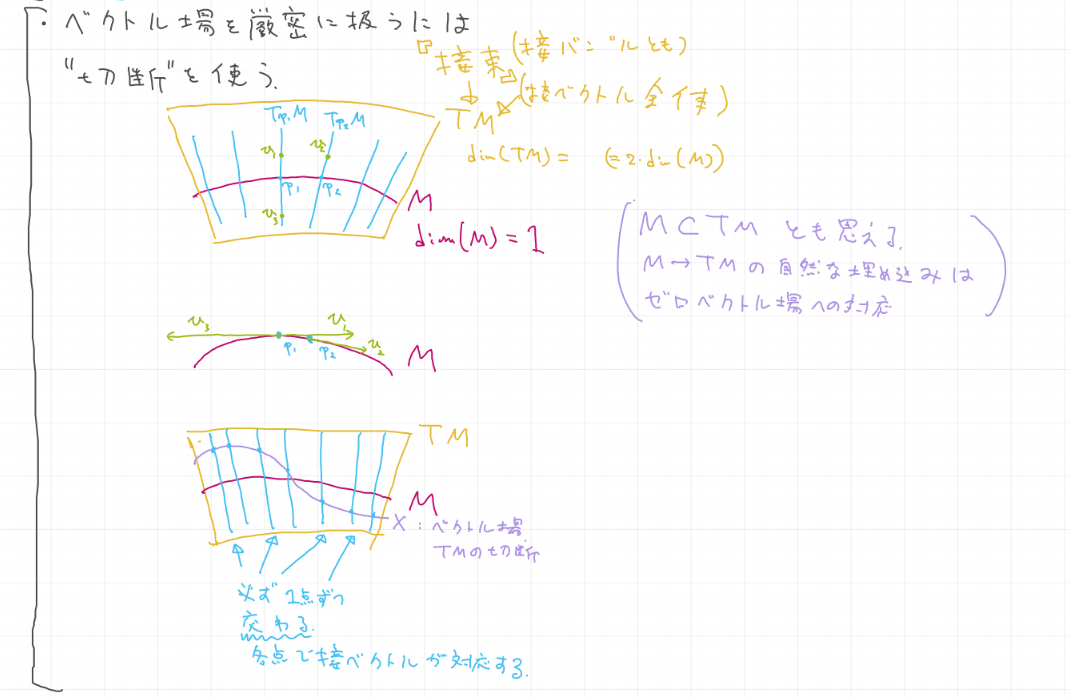 ・ベクトル場を厳密に扱うには
"切断"を使う.
『接束』(接バンドルとも)
(接ベクトル全体)
TM
dim(TM) = (=2・dim(M))
Tp₁M Tp₂M
v₁ v₂
p₁ p₂
v₃
M
dim(M) = 1
(M⊂TM とも思える.
M→TMの自然な埋め込みは
ゼロベクトル場への対応)
v₃ v₁
p₁ p₂ v₂
M
TM
M
X : ベクトル場.
TMの切断
必ず1点ずつ
交わる.
各点で接ベクトルが対応する.